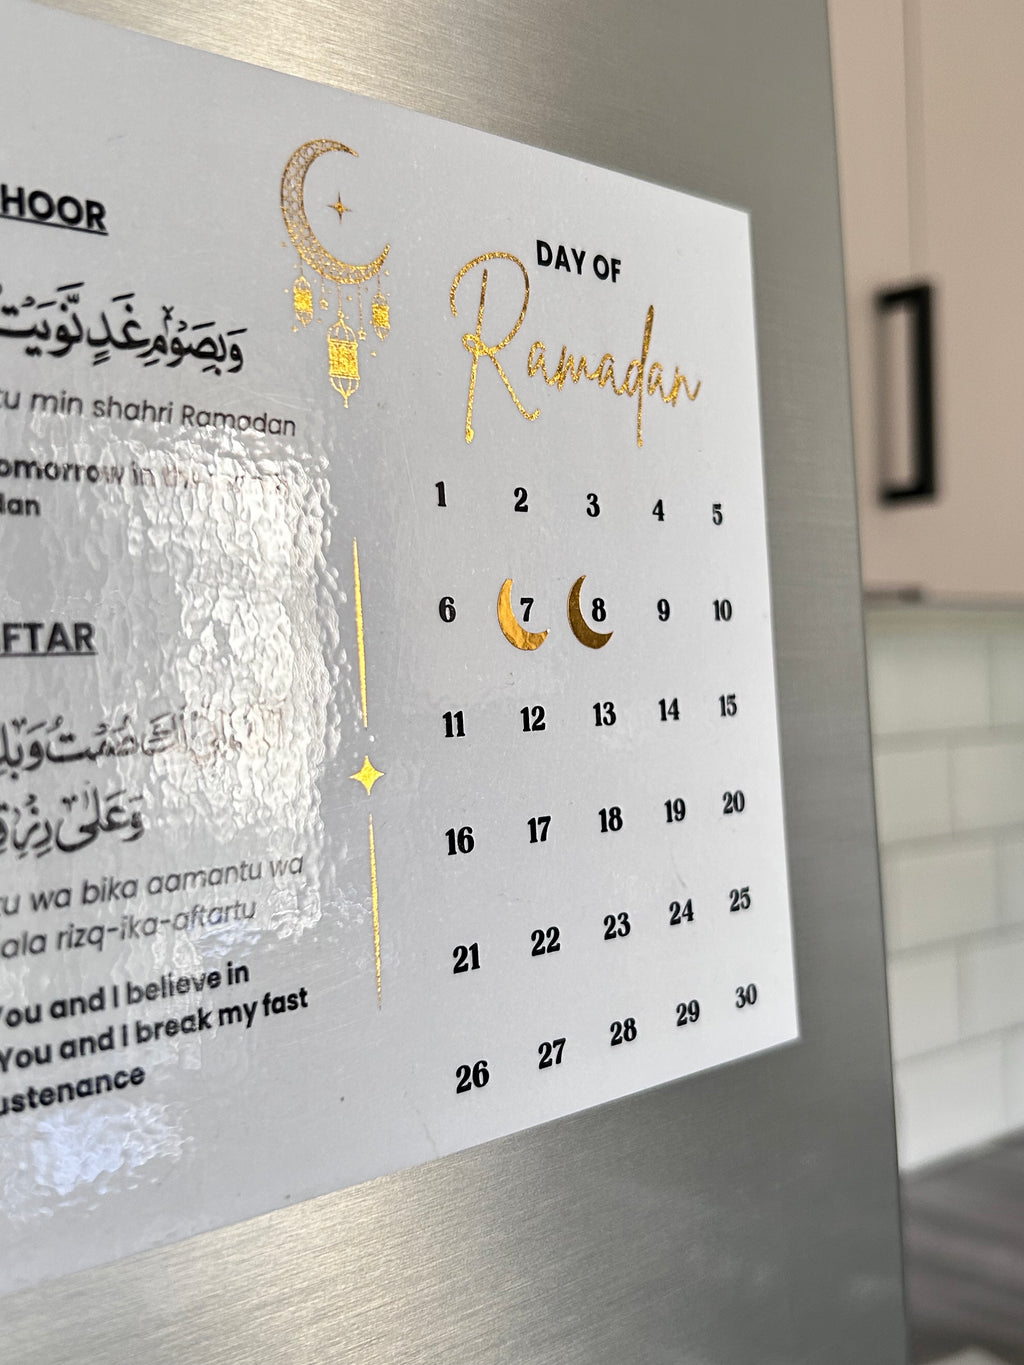 HOOR
وَبِصَوْمِ غَدٍ نَّوَيْتُ
tu min shahri Ramadan
omorrow in the
dan
FTAR
صُمْتُ وَبِكَ
وَعَلَىٰ رِزْقِ
tu wa bika aamantu wa
ala rizq-ika-aftartu
You and I believe in
You and I break my fast
ustenance
DAY OF
Ramadan
1 2 3 4 5
6 7 8 9 10
11 12 13 14 15
16 17 18 19 20
21 22 23 24 25
26 27 28 29 30